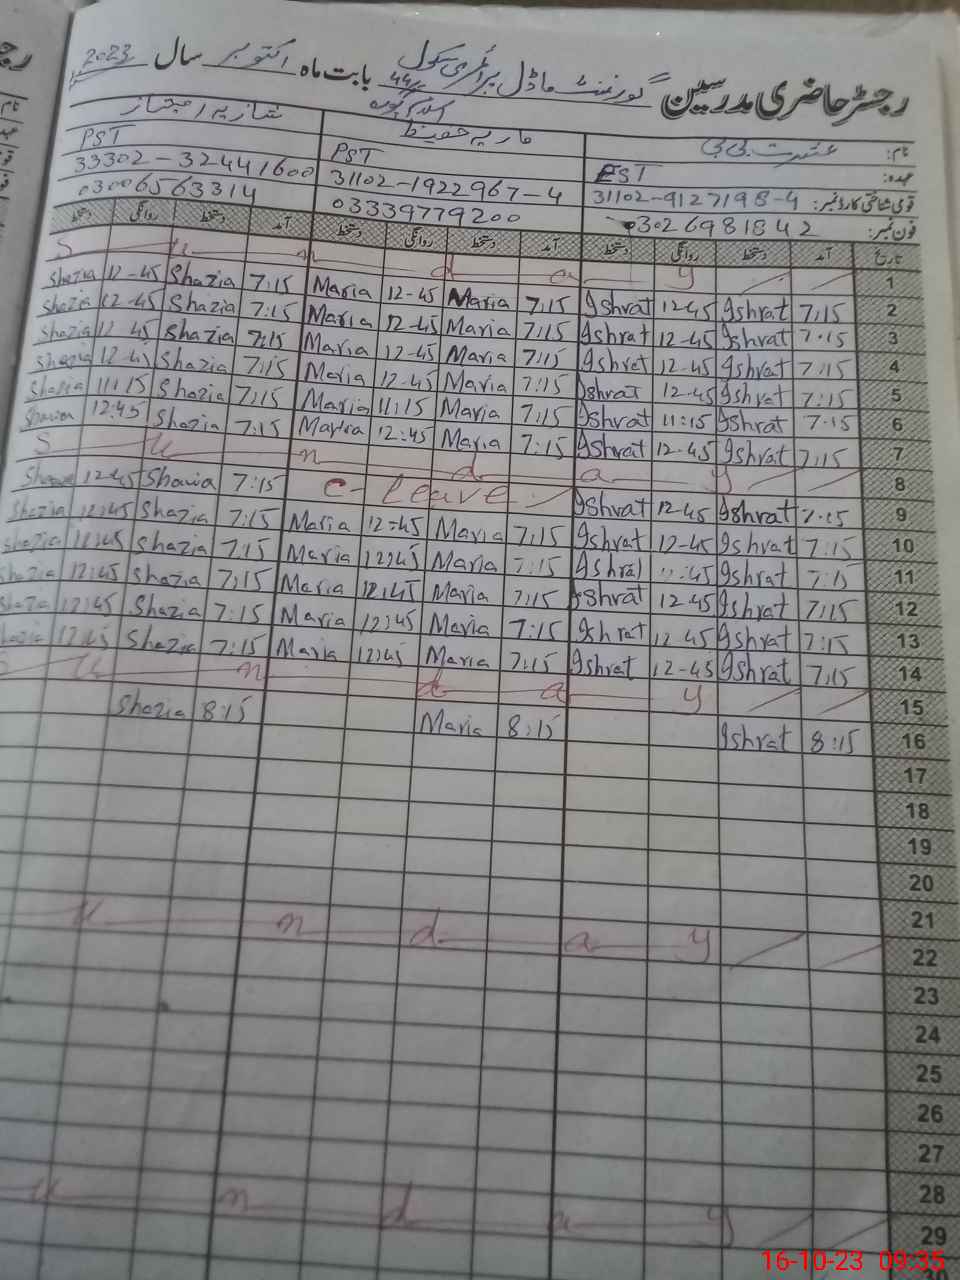 رجسٹر حاضری مدرسین گورنمنٹ ماڈل پرائمری سکول بابت ماہ اکتوبر سال 2023
نام: عشرت بی بی ماریہ حفیظ شازیہ امتیاز
عہدہ: EST PST PST
قومی شناختی کارڈ نمبر: 31102-9127198-4 31102-1922967-4 33302-32441600
فون نمبر: 03026981842 03339779200 03006563314
تاریخ آمد دستخط روانگی دستخط آمد دستخط روانگی دستخط آمد دستخط روانگی دستخط
S u n d a y 1
Shazia 12-45 Shazia 7:15 Maria 12-45 Maria 7:15 Ishrat 12-45 Ishrat 7:15 2
Shazia 12-45 Shazia 7:15 Maria 12-45 Maria 7:15 Ishrat 12-45 Ishrat 7:15 3
Shazia 12-45 Shazia 7:15 Maria 12-45 Maria 7:15 Ishrat 12-45 Ishrat 7:15 4
Shazia 12-45 Shazia 7:15 Maria 12-45 Maria 7:15 Ishrat 12-45 Ishrat 7:15 5
Shazia 11:15 Shazia 7:15 Maria 11:15 Maria 7:15 Ishrat 11:15 Ishrat 7:15 6
Shazia 12:45 Shazia 7:15 Maria 12:45 Maria 7:15 Ishrat 12-45 Ishrat 7:15 7
S u n d a y 8
Shazia 12-45 Shazia 7:15 C-leave Ishrat 12-45 Ishrat 7:15 9
Shazia 12:45 Shazia 7:15 Maria 12:45 Maria 7:15 Ishrat 12-45 Ishrat 7:15 10
Shazia 12:45 Shazia 7:15 Maria 12:45 Maria 7:15 Ishrat 12:45 Ishrat 7:15 11
Shazia 12:45 Shazia 7:15 Maria 12:45 Maria 7:15 Ishrat 12-45 Ishrat 7:15 12
Shazia 12:45 Shazia 7:15 Maria 12:45 Maria 7:15 Ishrat 12-45 Ishrat 7:15 13
Shazia 12:45 Shazia 7:15 Maria 12:45 Maria 7:15 Ishrat 12-45 Ishrat 7:15 14
S u n d a y 15
Shazia 8:15 Maria 8:15 Ishrat 8:15 16
17
18
19
20
21
u n d a y 22
23
24
25
26
27
28
u n d a y 29
16-10-23 09:35